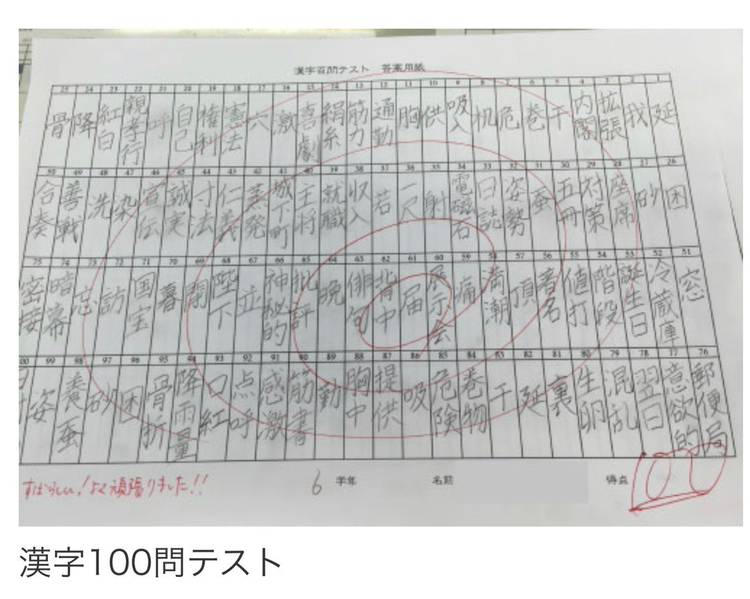 漢字百問テスト 答案用紙
1 延
2 我
3 拡張
4 内閣
5 干
6 巻
7 危
8 机
9 吸入
10 供
11 胸
12 通勤
13 筋力
14 絹糸
15 喜劇
16 激
17 穴
18 憲法
19 権利
20 自己
21 呼
22 親孝行
23 紅白
24 降
25 骨
26 困
27 砂
28 座席
29 対策
30 五冊
31 蚕
32 姿勢
33 日誌
34 電磁石
35 射
36 一尺
37 若
38 収入
39 就職
40 王将
41 城下町
42 蒸発
43 仁義
44 寸法
45 誠実
46 宣伝
47 染
48 洗
49 善戦
50 合奏
51 窓
52 冷蔵庫
53 誕生日
54 階段
55 値打
56 著名
57 頂
58 満潮
59 痛
60 展示会
61 届
62 背中
63 俳句
64 晩
65 批評
66 神秘的
67 並
68 陛下
69 閉
70 暮
71 国宝
72 訪
73 忘
74 暗幕
75 密接
76 郵便局
77 意欲的
78 翌日
79 混乱
80 生卵
81 裏
82 延
83 干
84 巻物
85 危険
86 吸
87 提供
88 胸中
89 勤
90 筋書
91 感激
92 点呼
93 口紅
94 降雨量
95 骨折
96 困
97 砂
98 養蚕
99 姿
すばらしい!よく頑張りました!!
6 学年 名前 得点 100
漢字100問テスト